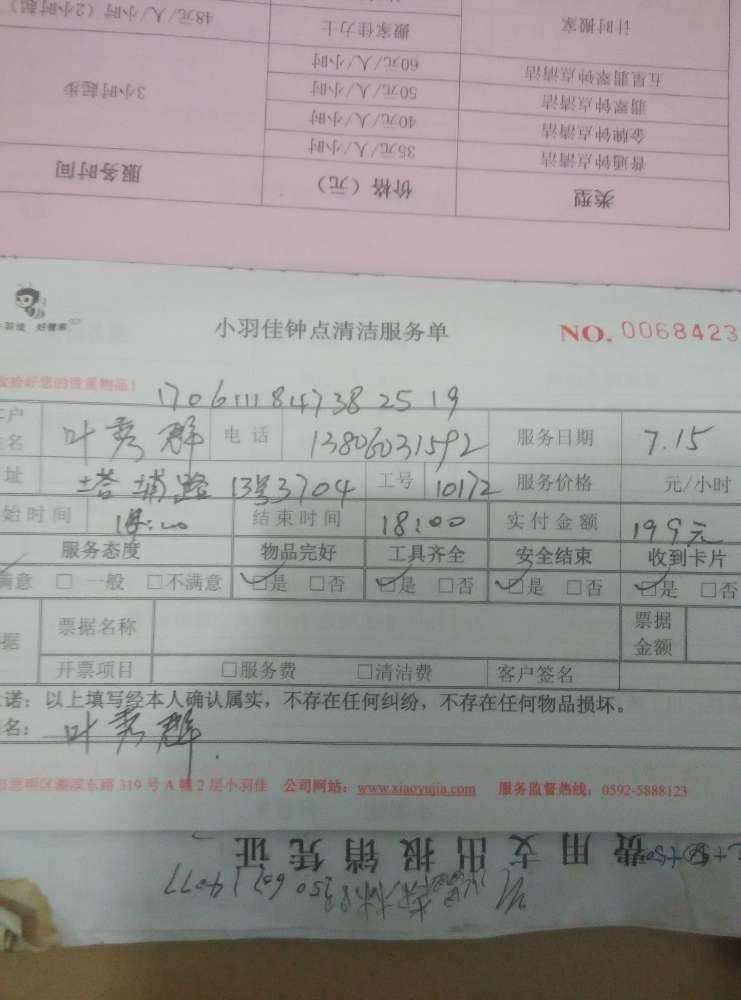 类型 价格（元） 服务时间
普通钟点清洁 35元/人/小时 3小时起步
金牌钟点清洁 40元/人/小时
翡翠钟点清洁 50元/人/小时
五星翡翠钟点清洁 60元/人/小时
计时搬家 搬家佳力士 48元/人/小时（2小时起）
好管家
小羽佳钟点清洁服务单 NO. 0068423
您的贵重物品！
17061118473825 19
叶秀群 电话 13806031592 服务日期 7.15
址 塔埔路13号3704 工号 10172 服务价格 元/小时
始时间 结束时间 18:00 实付金额 199元
服务态度 物品完好 工具齐全 安全结束 收到卡片
满意 □一般 □不满意 ☑是 □否 ☑是 □否 ☑是 □否 ☑是 □否
据 票据名称 票据金额
开票项目 □服务费 □清洁费 客户签名
诺：以上填写经本人确认属实，不存在任何纠纷，不存在任何物品损坏。
名：叶秀群
思明区湖滨东路319号A幢2层小羽佳 公司网站：www.xiaoyujia.com 服务监督热线：0592-5888123
费用支出报销凭证